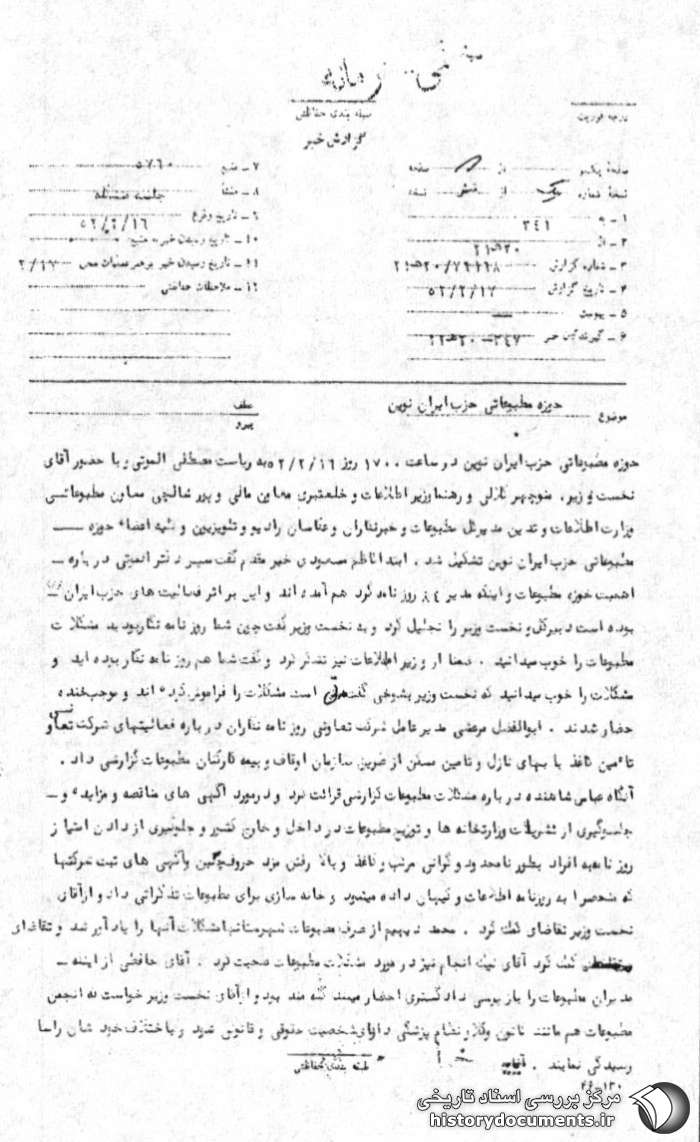 درجه فوریت
طبقه بندی حفاظتی
گزارش خبر
صفحه یکم از صفحه
نسخه شماره یک از شش نسخه
۱ - به ۳۴۱
۲ - از ۲۰ هـ ۲۱
۳ - شماره گزارش
۴ - تاریخ گزارش ۵۲/۲/۱۷
۵ - پیوست
۶ - گیرندگان خبر
۷ - منبع ۵۷۶۰
۸ - منشأ جلسه
۹ - تاریخ وقوع ۵۲/۲/۱۶
۱۰ - تاریخ رسیدن خبر به منبع
۱۱ - تاریخ رسیدن خبر برهبر عملیات محل ۲/۱۷
۱۲ - ملاحظات حفاظتی
موضوع حوزه مطبوعاتی حزب ایران نوین
عطف
پیرو
حوزه مطبوعاتی حزب ایران نوین در ساعت ۱۷۰۰ روز ۵۲/۲/۱۶ به ریاست مصطفی الموتی و با حضور آقای
نخست وزیر، منوچهر و رهنما وزیر اطلاعات و خلعتبری معاون مالی و پورشالچی معاون مطبوعاتی
وزارت اطلاعات و تدین مدیرکل مطبوعات و خبرنگاران و عکاسان رادیو و تلویزیون و بقیه اعضاء حوزه
مطبوعاتی حزب ایران نوین تشکیل شد . ابتدا کاظم مسعودی خیر مقدم گفت سپس دکتر الموتی درباره
اهمیت حوزه مطبوعات و اینکه مدیر ۴۸ روزنامه گرد هم آمده اند و این بر اثر فعالیت های حزب ایران
بوده است دبیرکل و نخست وزیر را تجلیل کرد و به نخست وزیر گفت چون شما روزنامه نگار بودید مشکلات
مطبوعات را خوب میدانید . ضمنا از وزیر اطلاعات نیز تشکر کرد و گفت شما هم روزنامه نگار بوده اید و
مشکلات را خوب میدانید که نخست وزیر بشوخی گفت است مشکلات را فراموش کرده اند و موجب خنده
حضار شدند . ابوالفضل مرعشی مدیرعامل شرکت تعاونی روزنامه نگاران درباره فعالیتهای شرکت تعاونی
تأمین کاغذ با بهای نازل و تامین مسکن از طریق سازمان اوقاف و بیمه کارکنان مطبوعات گزارشی داد .
آنگاه عباس شاهنده درباره مشکلات مطبوعات گزارشی قرائت کرد و در مورد آگهی های مناقصه و مزایده و
جلوگیری از نشریات وزارتخانه ها و توزیع مطبوعات در داخل و خارج کشور و جلوگیری از دادن امتیاز
روزنامه به افراد بطور نامحدود و گرانی مرکب و کاغذ و بالا رفتن مزد حروفچین و آگهی های ثبت شرکتها
که منحصرا به روزنامه اطلاعات و کیهان داده میشود و خانه سازی برای مطبوعات تذکراتی داد و از آقای
نخست وزیر تقاضای کمک کرد . محمد دیهیم از طرف مطبوعات شهرستانها مشکلات آنها را یادآور شد و تقاضای
کمک کرد آقای نیک انجام نیز در مورد مشکلات مطبوعات صحبت کرد . آقای حافظی از اینکه
مدیران مطبوعات را بازپرسی دادگستری احضار میکند گله مند بود و از آقای نخست وزیر خواست که انجمن
مطبوعات هم مانند کانون وکلا و نظام پزشکی دارای شخصیت حقوقی و قانونی شود و باختلاف خودشان راسا
رسیدگی نمایند .
طبقه بندی حفاظتی
۴۶-۱۳۰
مرکز بررسی اسناد تاریخی
historydocuments.ir